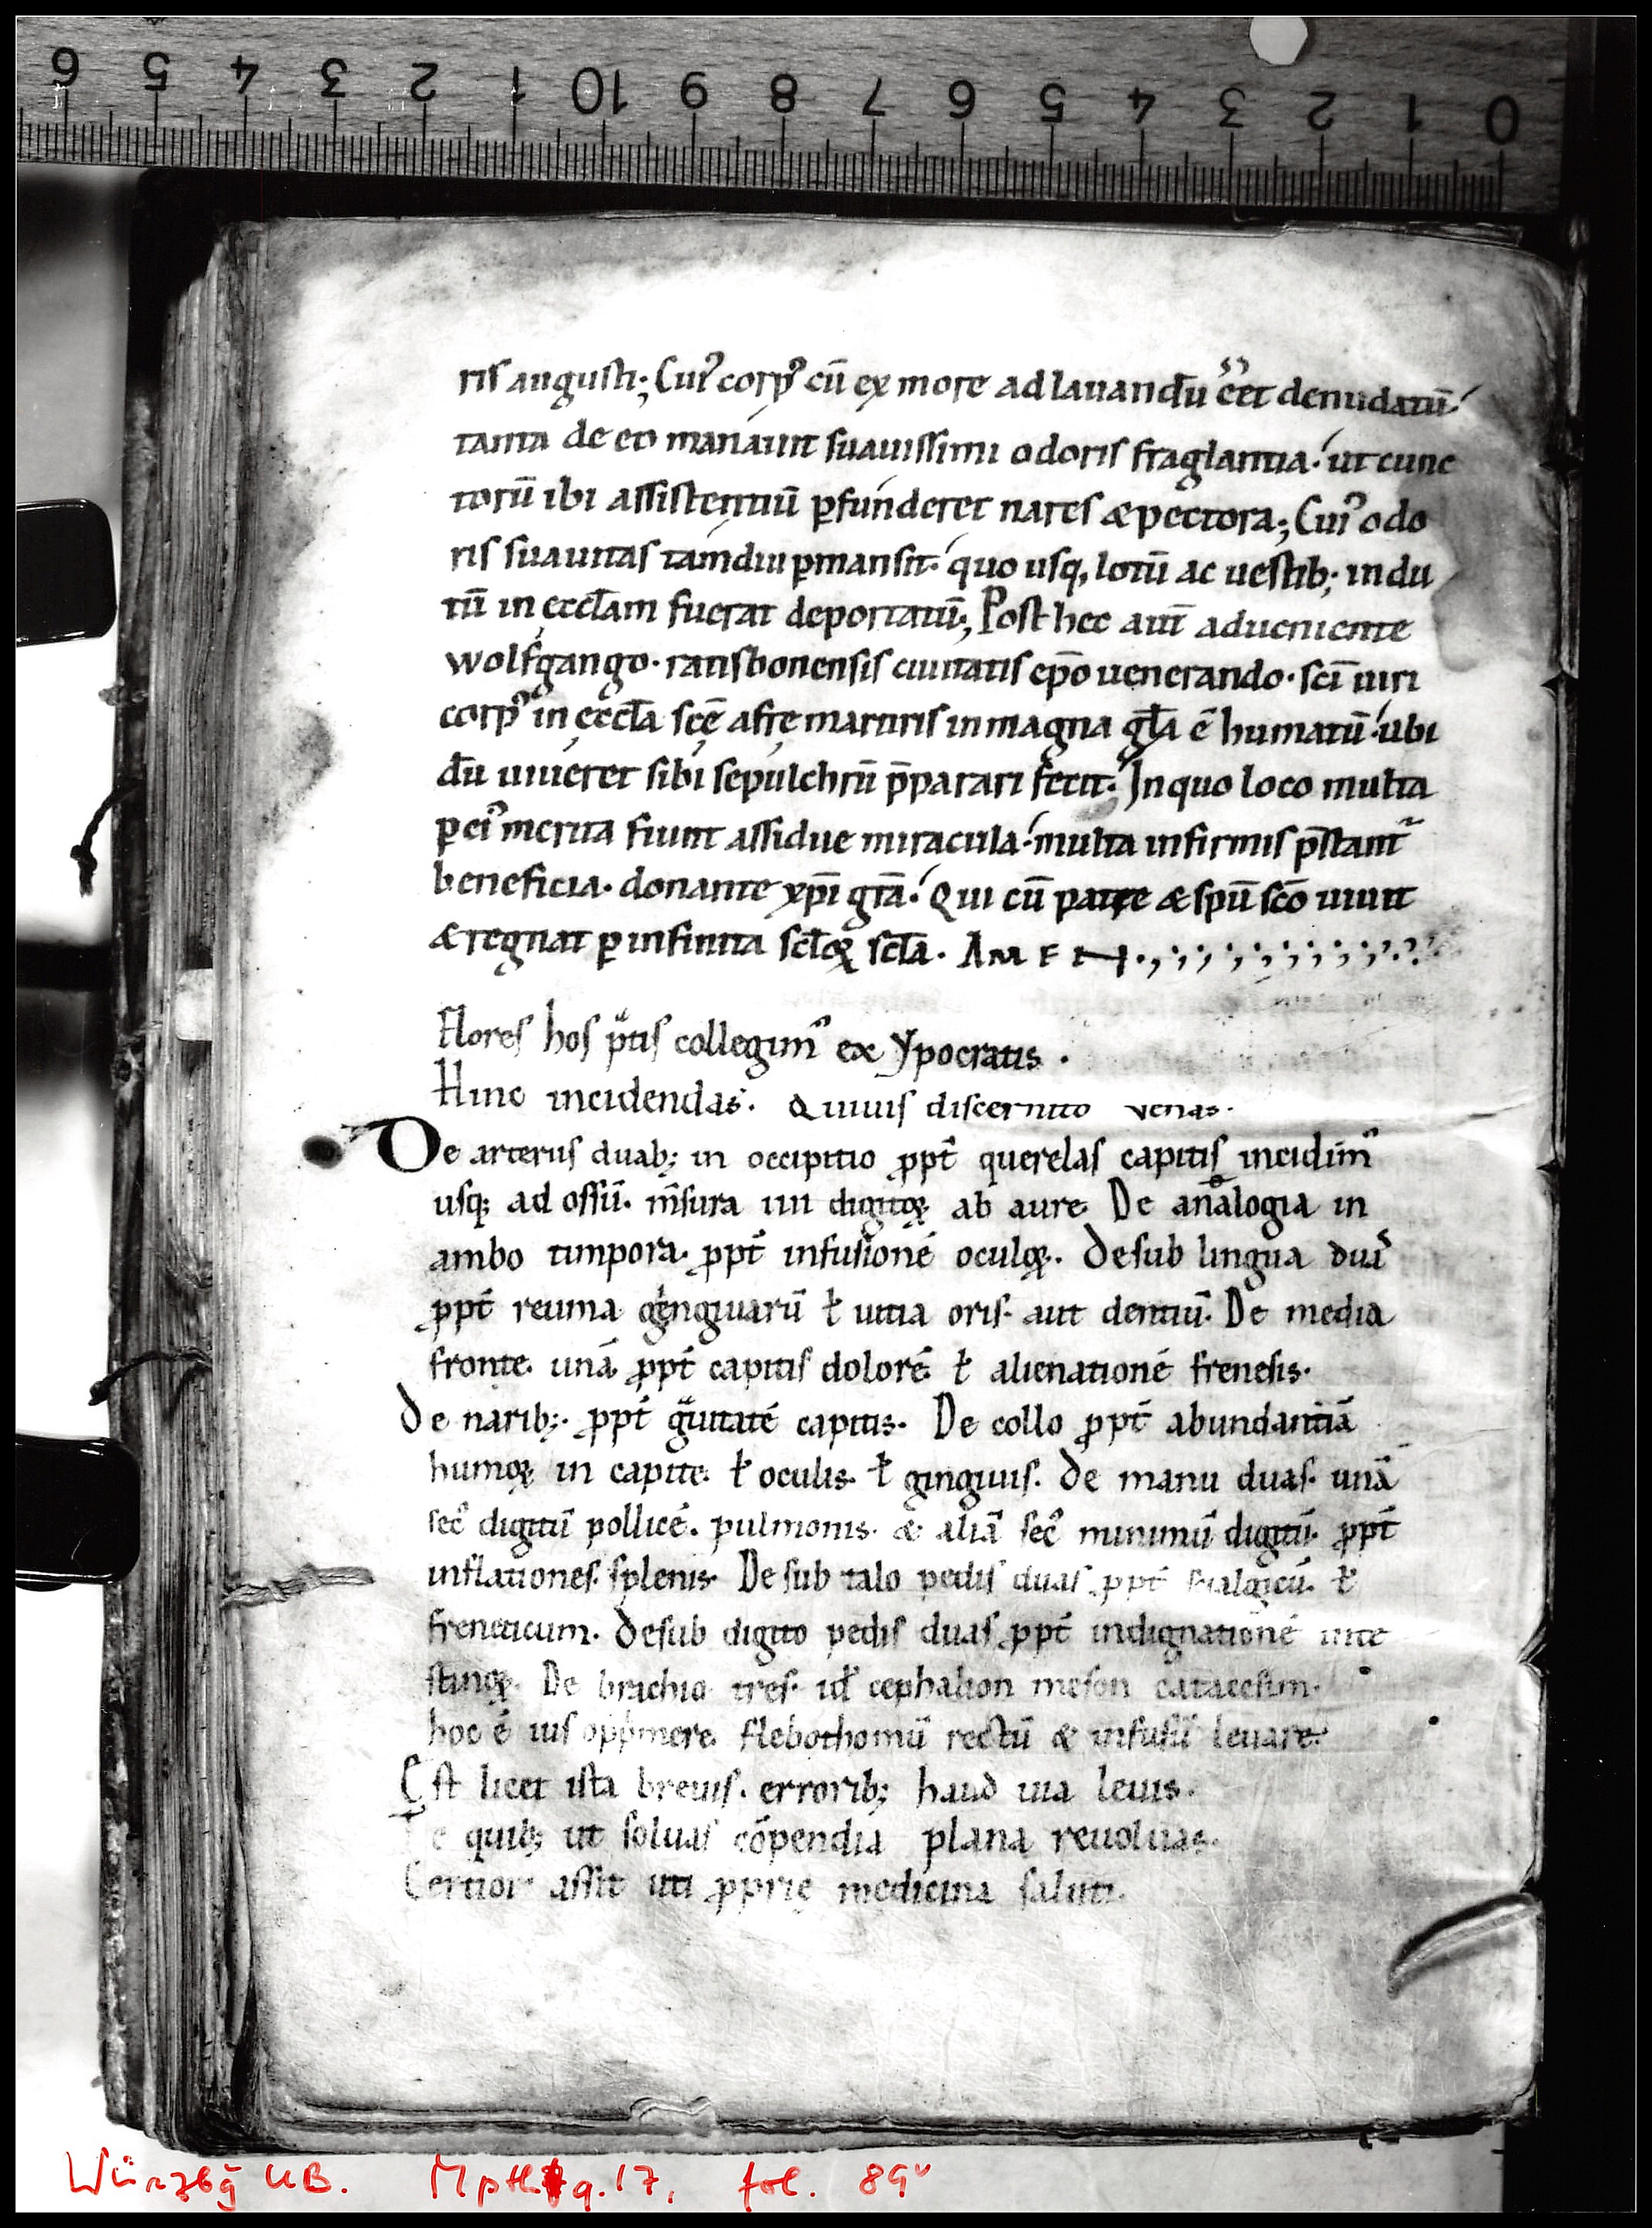 6 5 4 3 2 1 10 9 8 7 6 5 4 3 2 1 0
ris augusti; Cuiꝰ corpꝰ cū ex more ad lauandū eēt denudatū.
tanta de eo manauit suauissimi odoris fraglantia. ut cunc
torū ibi assistentiū ꝑfunderet nares & pectora; Cuiꝰ odo
ris suauitas tamdiu ꝑmansit. quo usq, lotū ac uestib; indu
tū in eccl̄am fuerat deportatū; Post hec aut̄ adueniente
wolfgango. ratisbonensis ciuitatis ep̄o uenerando. sc̄i uiri
corpꝰ in ęccl̄a scē̄ afrę martiris in magna gl̄a ē humatū. ubi
dū uiueret sibi sepulchrū p̄parari fecit. In quo loco multa
ꝑ eiꝰ merita fiunt assidue miracula. multa infirmis p̄stant᷑
beneficia. donante xp̄i gr̄a. Qui cū patre & sp̄u sc̄o uiuit
& regnat ꝑ infinita scl̄oꝝ scl̄a. AMEN.,;;;;;;;;;
Flores hos p̄tis collegimꝰ ex ypocratis.
Hinc incidendas. Quiuis discernito venas.
De arteriis duab; in occipitio ꝓpt̄ querelas capitis incidimꝰ
usq; ad ossū. m̄sura iiii digitoꝝ ab aure. De analogia in
ambo timpora. ꝓpt̄ infusionē oculoꝝ. De sub lingua duas
ꝓpt̄ reuma gingiuarū ł uitia oris. aut dentiū. De media
fronte. unā. ꝓpt̄ capitis dolorē. ł alienationē frenesis.
De narib;. ꝓpt̄ gͣuitatē capitis. De collo ꝓpt̄ abundantiā
humoꝝ in capite. ł oculis. ł gingiuis. De manu duas. unā
secꝰ digitū pollicē. pulmonis. & aliā secꝰ minimū digitū. ꝓpt̄
inflationes splenis. De sub talo pedis duas ꝓpt̄ ł
freneticum. De sub digito pedis duas ꝓpt̄ indignationē inte
stinoꝝ. De brachio tres. id̄ cephalion meson catacestim.
hoc ē ius oppͥmere. flebothomū rectū & infusū leuare.
Est licet ista breuis. errorib; haud uia leuis.
e quib; ut soluas cōpendia plana reuoluas.
Certior assit uti ꝓprię medicina saluti.
Würzbg UB. Mpth q. 17, fol. 89v